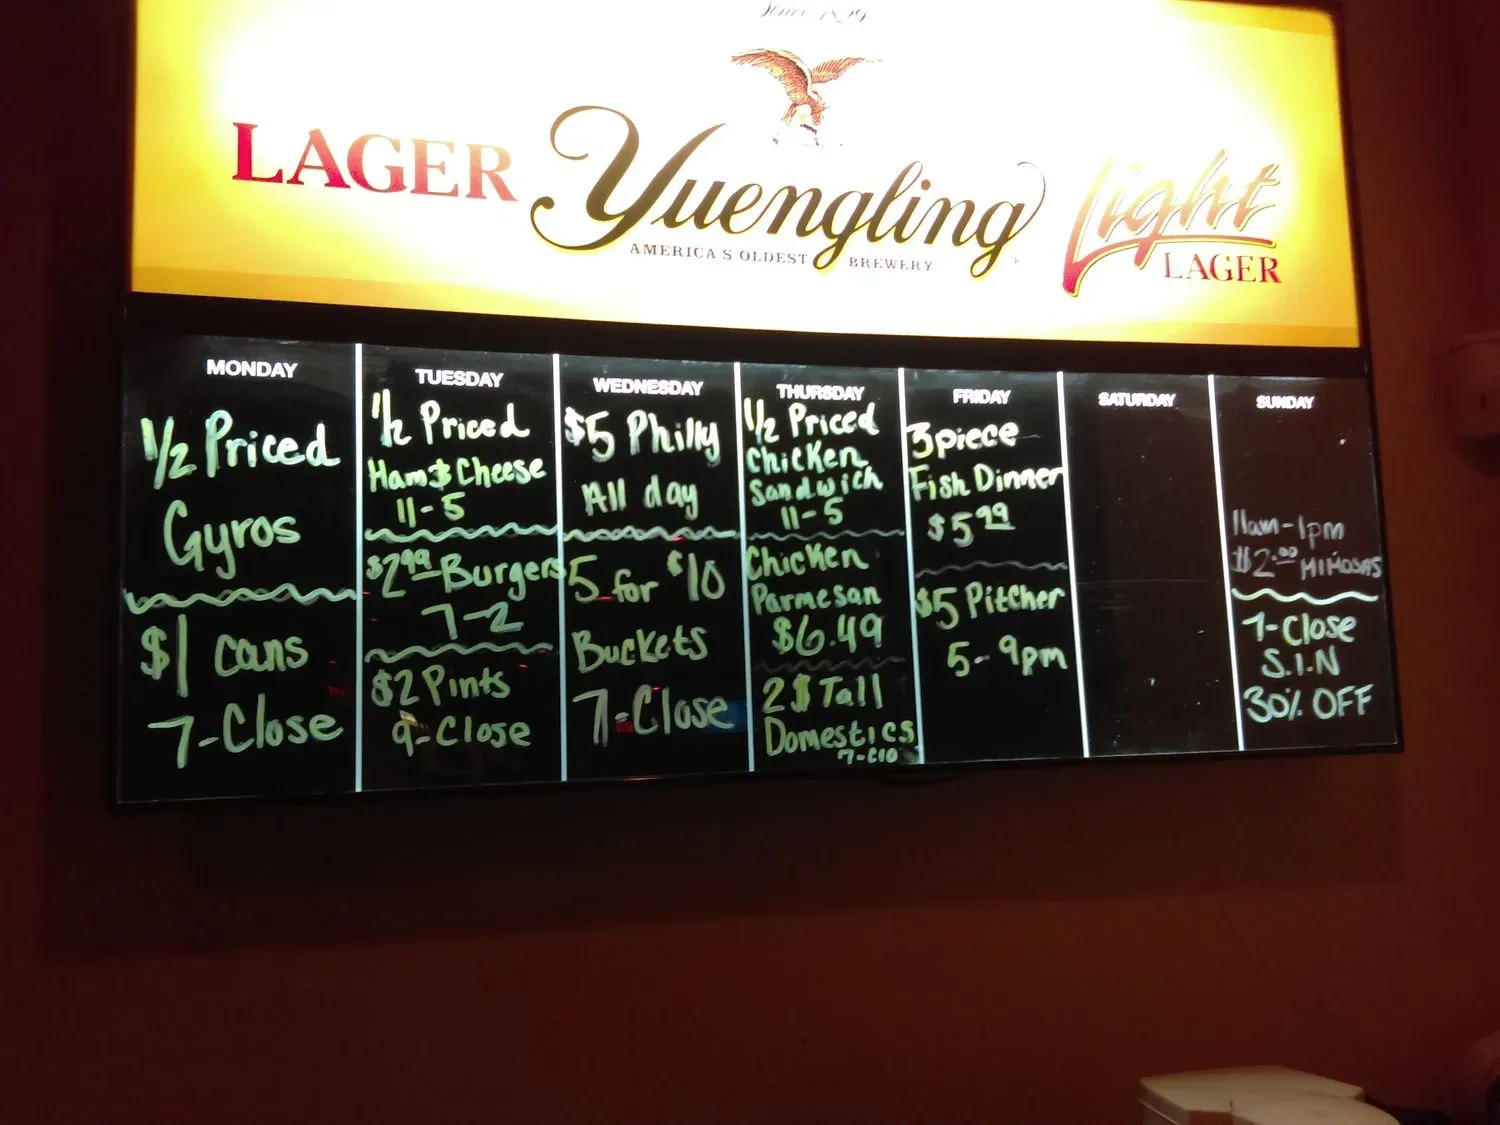 Since 1829
LAGER
Yuengling
AMERICA'S OLDEST BREWERY
Light
LAGER
MONDAY
1/2 Priced
Gyros
$1 cans
7-Close
TUESDAY
1/2 Priced
Ham & Cheese
11-5
$2.99 Burgers
7-2
$2 Pints
9-Close
WEDNESDAY
$5 Philly
All day
5 for $10
Buckets
7-Close
THURSDAY
1/2 Priced
Chicken
Sandwich
11-5
Chicken
Parmesan
$6.49
2$ Tall
Domestics
FRIDAY
3 piece
Fish Dinner
$5.99
$5 Pitcher
5-9pm
SATURDAY
SUNDAY
11am-1pm
$2.00 MIMOSAS
7-Close
S.I.N
30% OFF